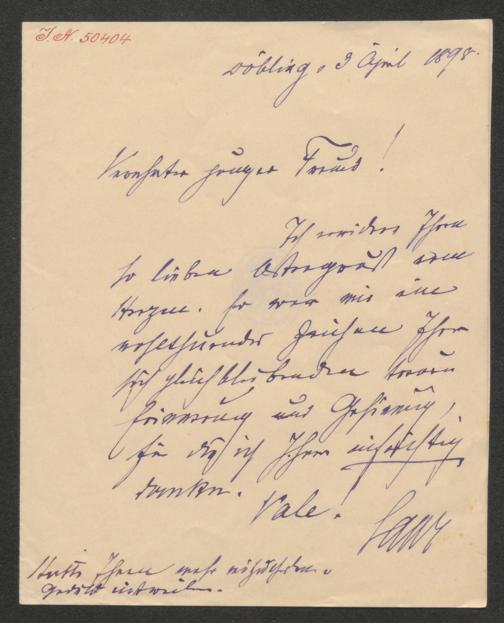 J.N. 50404
Döbling, 3 April 1898.
Verehrter junger Freund!
Ich erwidere Ihren
so lieben Ostergruß vom
Herzen. Er war mir ein
wohlthuendes Zeichen Ihrer
sich gleichbleibenden treuen
Erinnerung und Gesinnung,
für die ich Ihnen aufrichtig
danke.
Vale! Saar
Hätte Ihnen mehr mitzutheilen.
Geduld